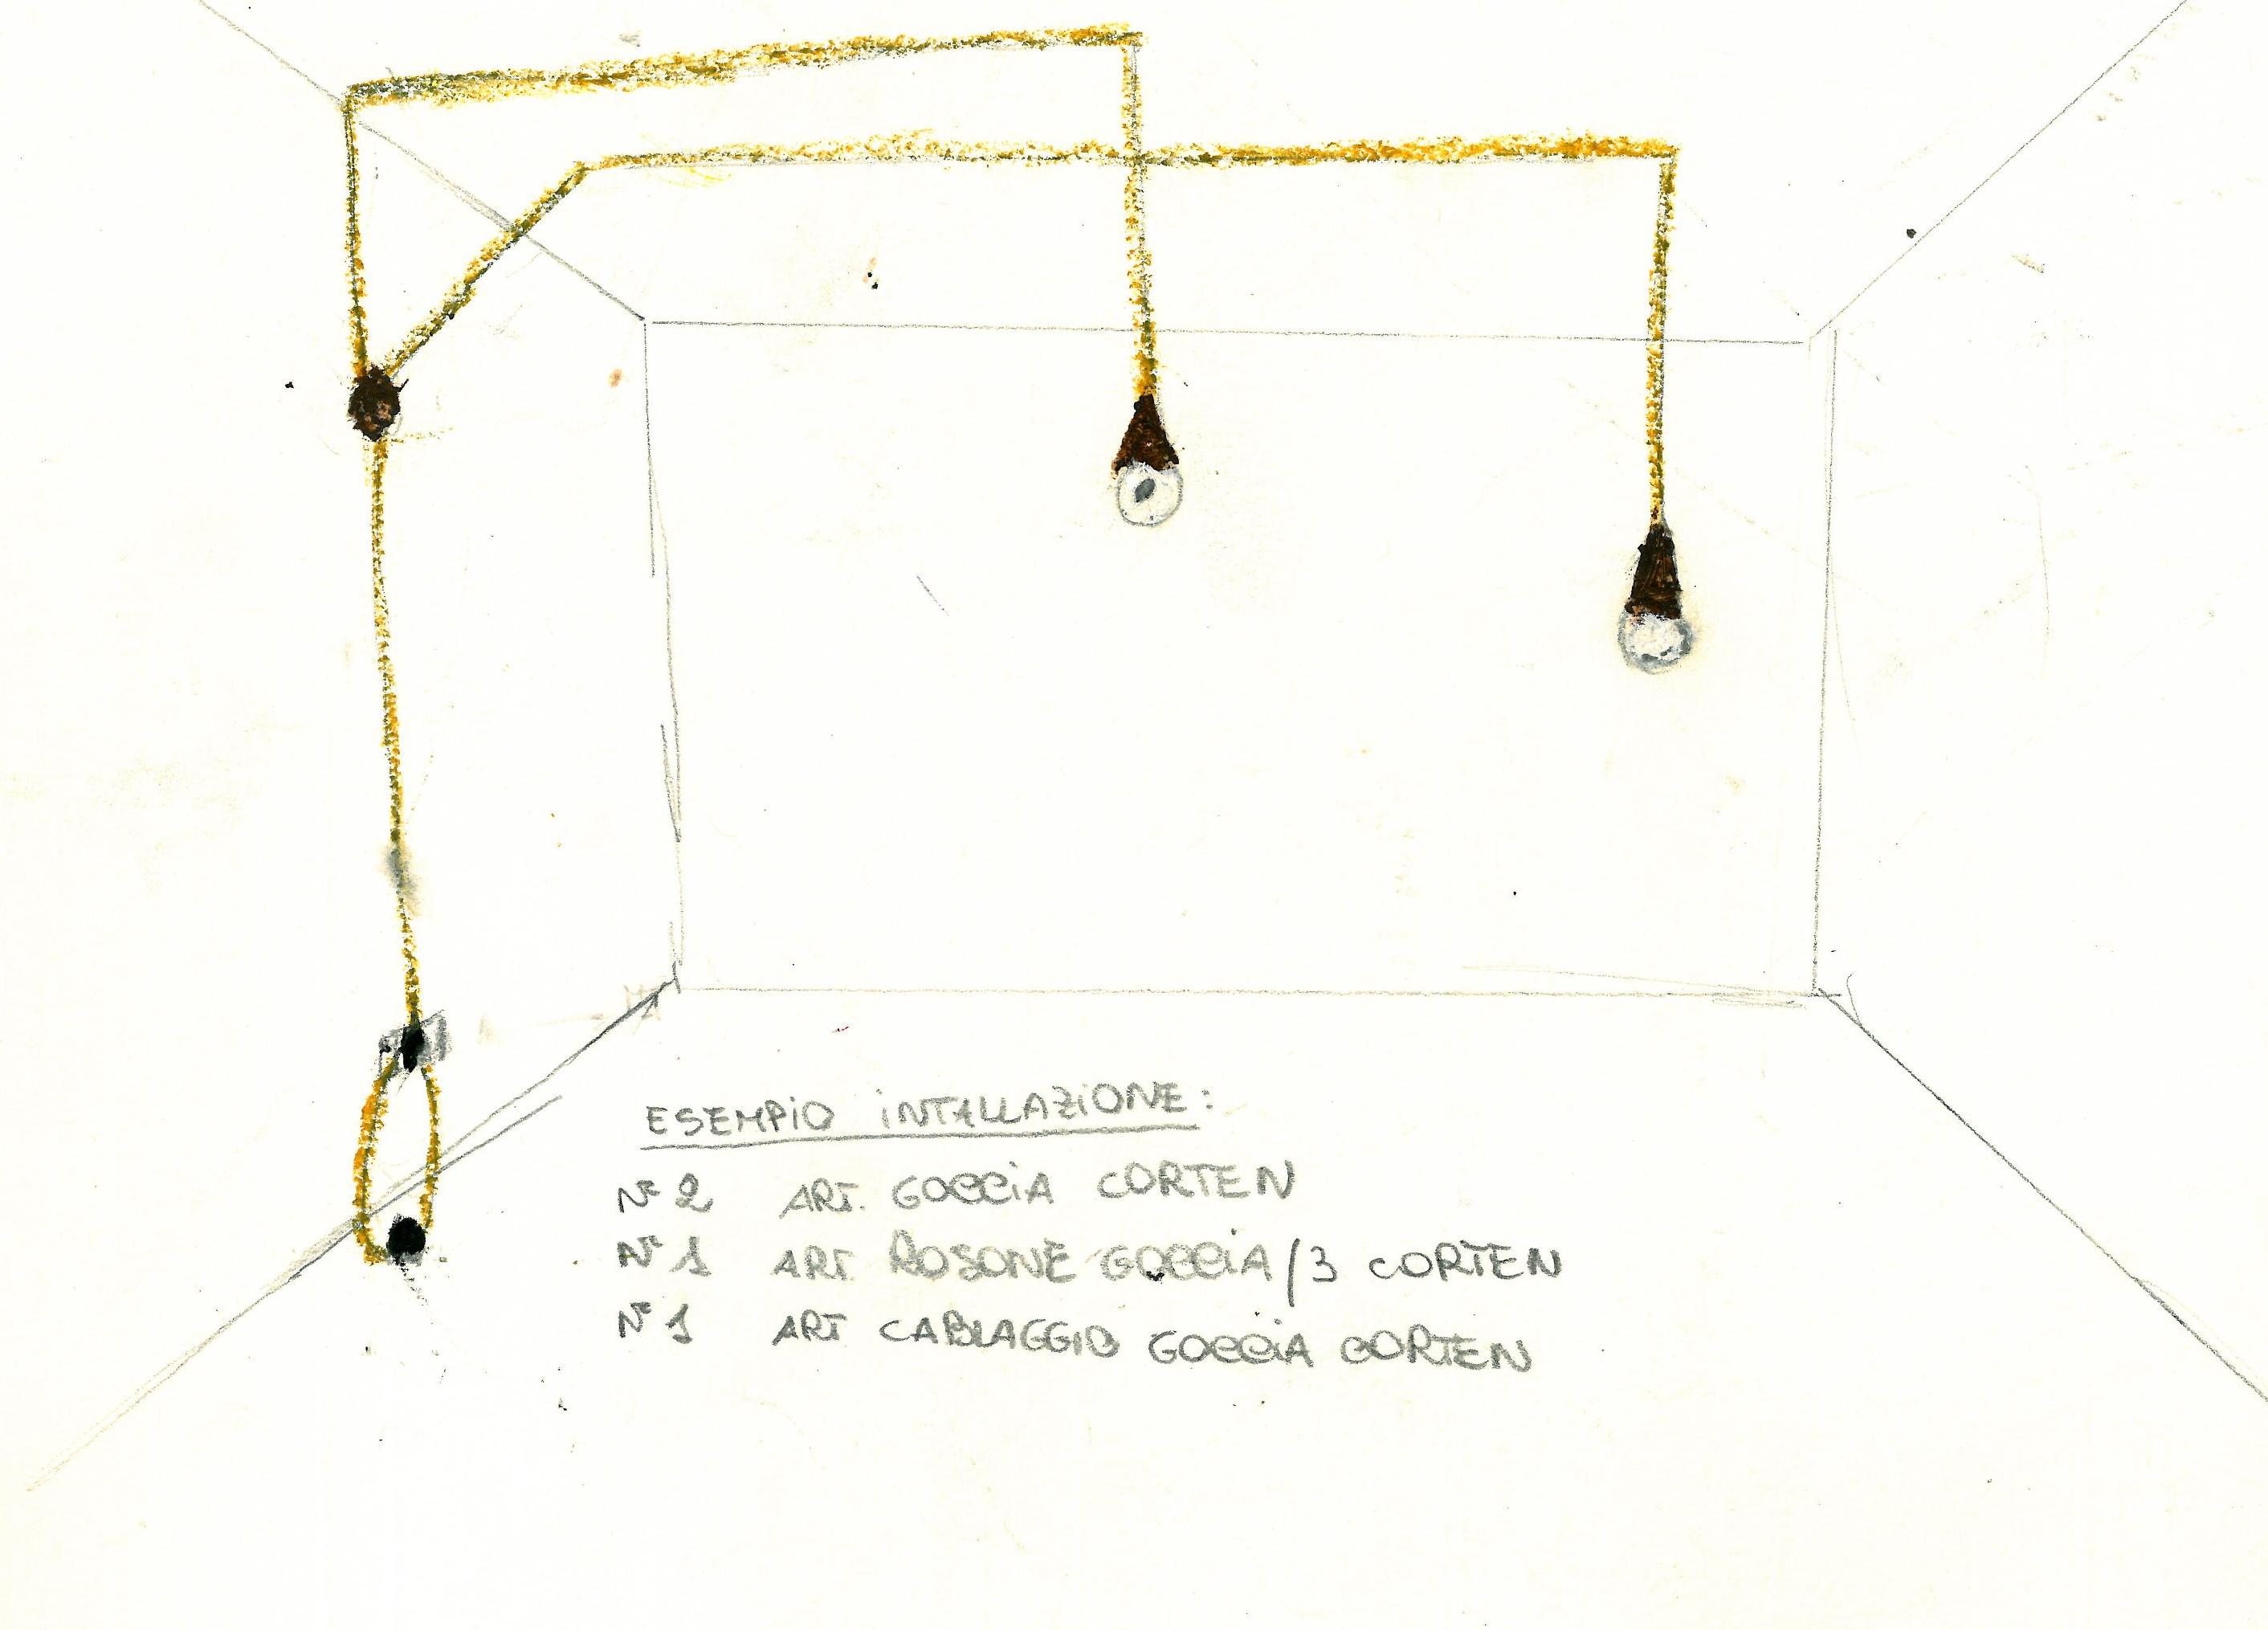 ESEMPIO INTALLAZIONE:
N° 2 ART. GOCCIA CORTEN
N° 1 ART. ROSONE GOCCIA/3 CORTEN
N° 1 ART CABLAGGIO GOCCIA CORTEN